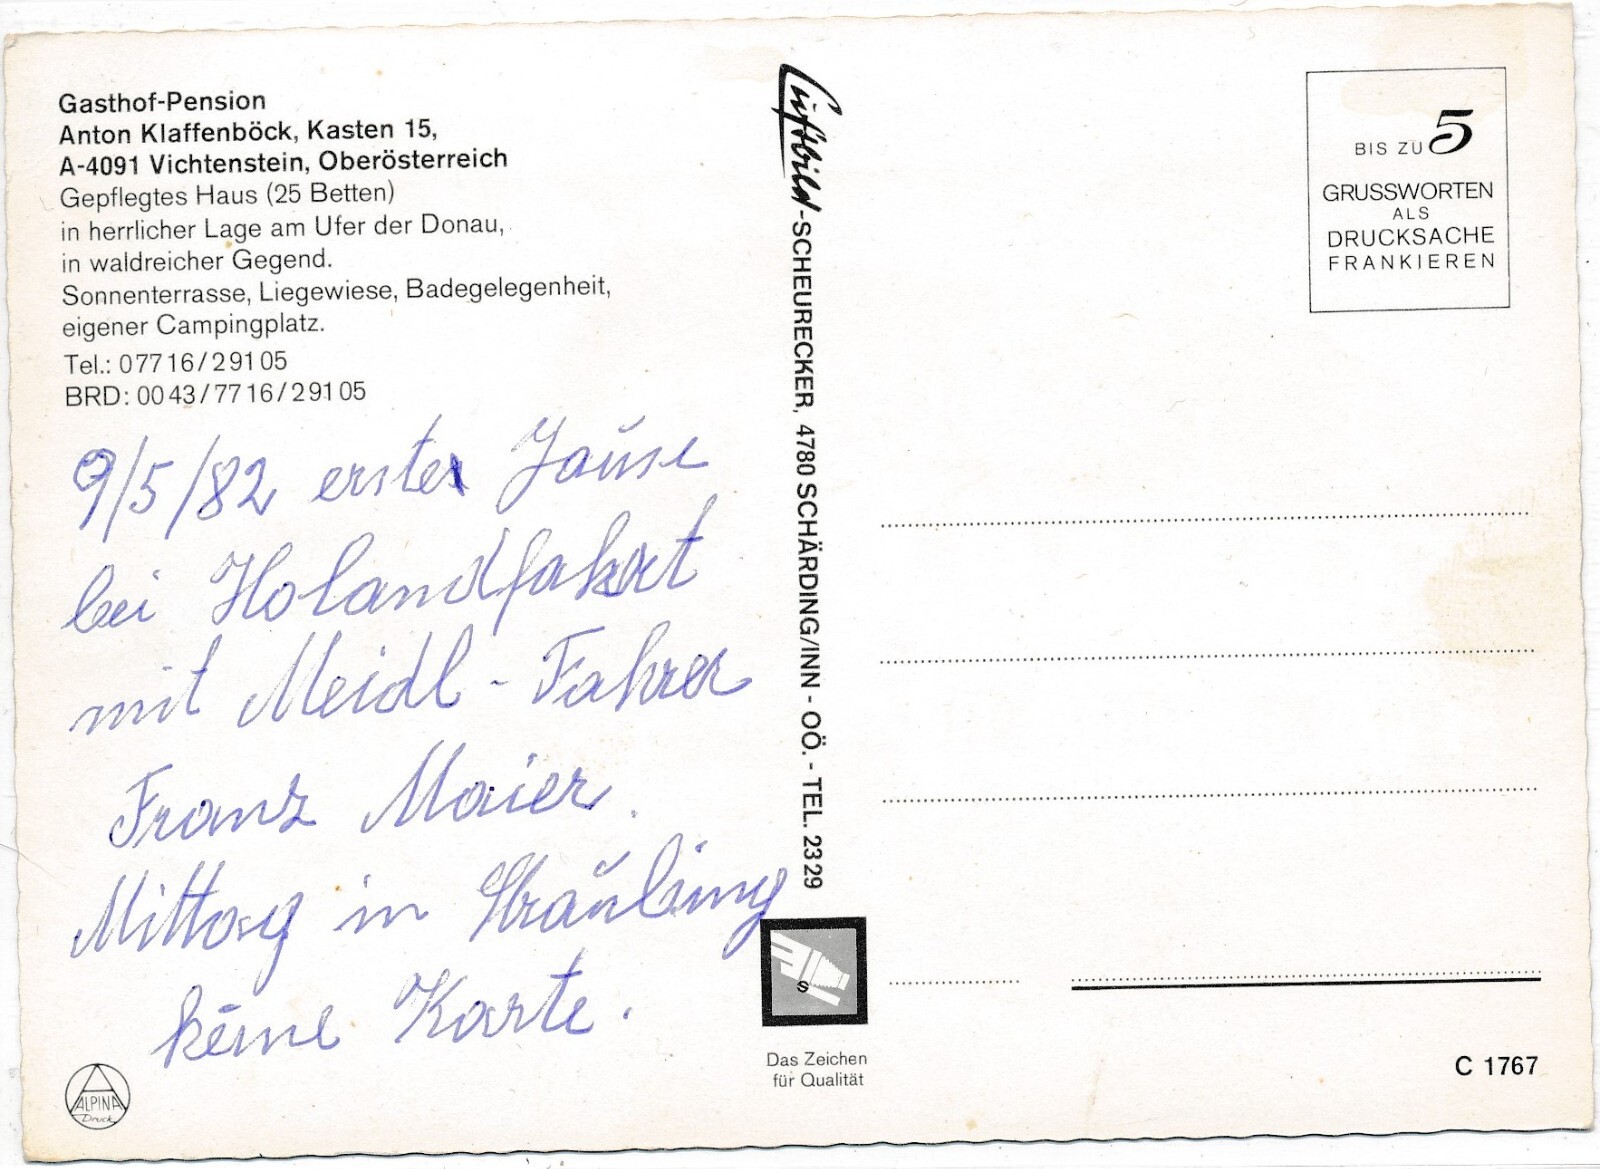 Gasthof-Pension
Anton Klaffenböck, Kasten 15,
A-4091 Vichtenstein, Oberösterreich
Gepflegtes Haus (25 Betten)
in herrlicher Lage am Ufer der Donau,
in waldreicher Gegend.
Sonnenterrasse, Liegewiese, Badegelegenheit,
eigener Campingplatz.
Tel.: 07716/29105
BRD: 0043/7716/29105
9/5/82 erste Jause
bei Holandfahrt
mit Meidl - Fahrer
Franz Maier.
Mittag in Straubing
keine Karte.
ALPINA
Druck
Luftbild-SCHEURECKER, 4780 SCHÄRDING/INN - OÖ. - TEL. 2329
S
Das Zeichen
für Qualität
BIS ZU 5
GRUSSWORTEN
ALS
DRUCKSACHE
FRANKIEREN
C 1767